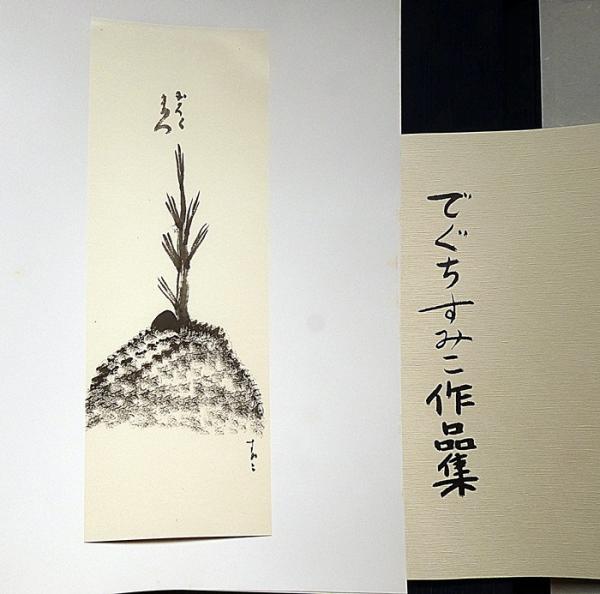 まつ
すみこ
でぐちすみこ作品集